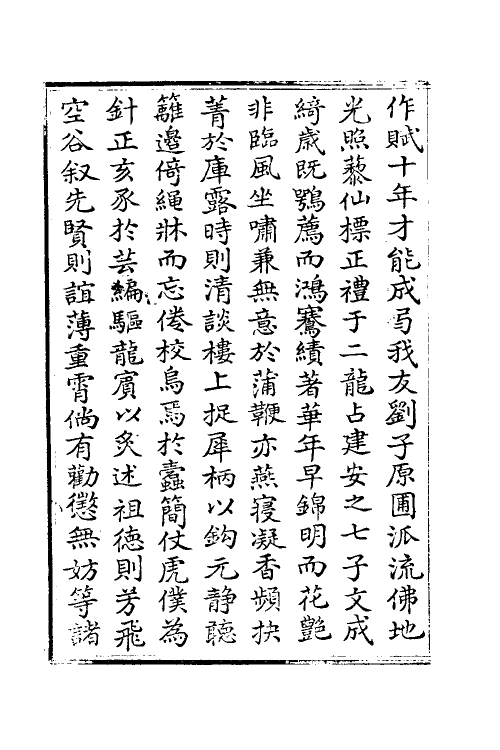 作賦十年才能成弓我友劉子原圃派流佛地
光照藜仙標正禮于二龍占建安之七子文成
綺歲既鶚薦而鴻騫績著華年早錦明而花艷
非臨風坐嘯兼無意於蒲鞭亦燕寝凝香頻抉
菁於庫露時則清談樓上捉犀柄以鈎元静聽
籬邊倚繩牀而忘倦校烏焉於蠹簡仗虎僕為
針正亥豕於芸編驅龍賓以炙述祖德則芳飛
空谷叙先賢則誼薄重霄倘有勸懲無妨等諸